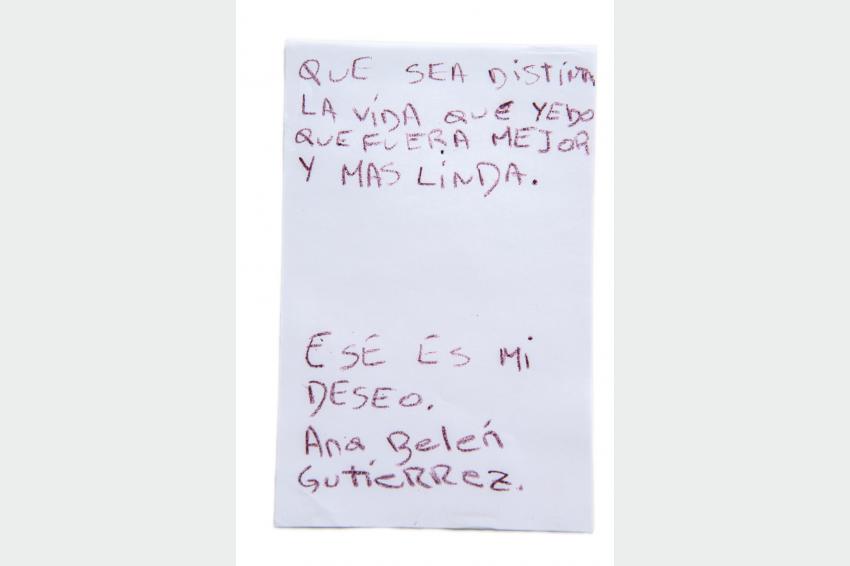 QUE SEA DISTINTA
LA VIDA QUE YEDO
QUE FUERA MEJOR
Y MAS LINDA.
ESE ES MI
DESEO.
Ana Belén
GUTIERREZ.